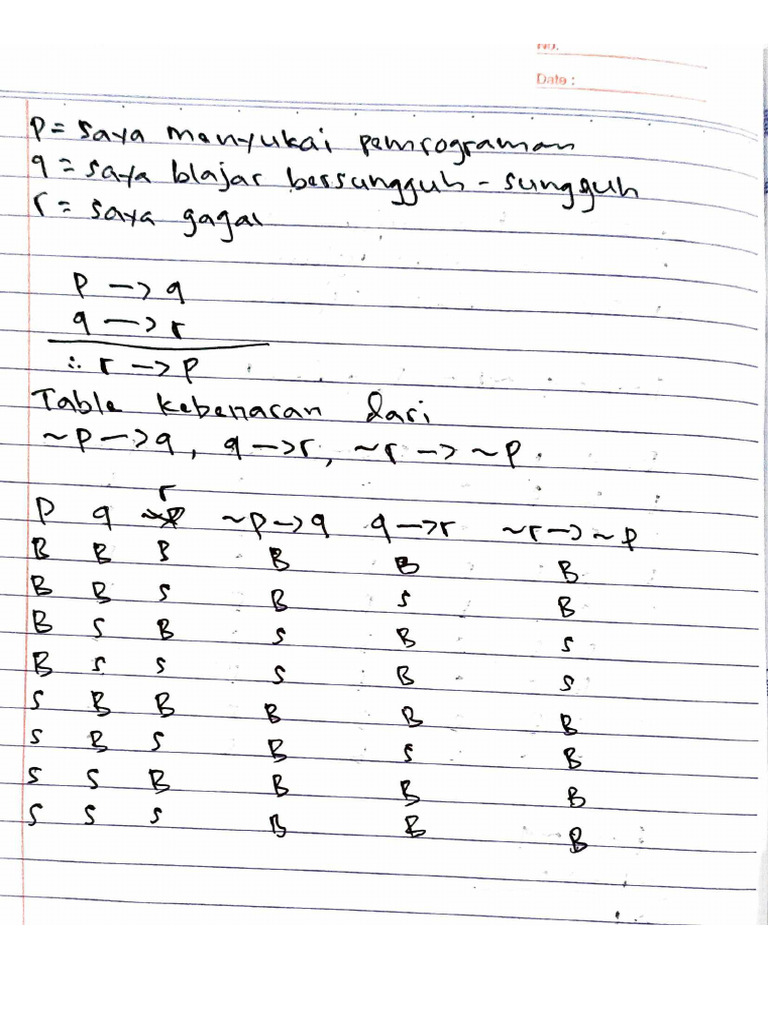 NO.
Date :
P = saya menyukai pemrograman
q = saya blajar bersungguh - sungguh
r = saya gagal
P -> q
q -> r
∴ r -> p
Table kebenaran dari
~P -> q, q -> r, ~r -> ~P.
r
P q ~P ~P -> q q -> r ~r -> ~P
B B B B B B
B B S B S B
B S B S B S
B S S S B S
S B B B B B
S B S B S B
S S B B B B
S S S B B B